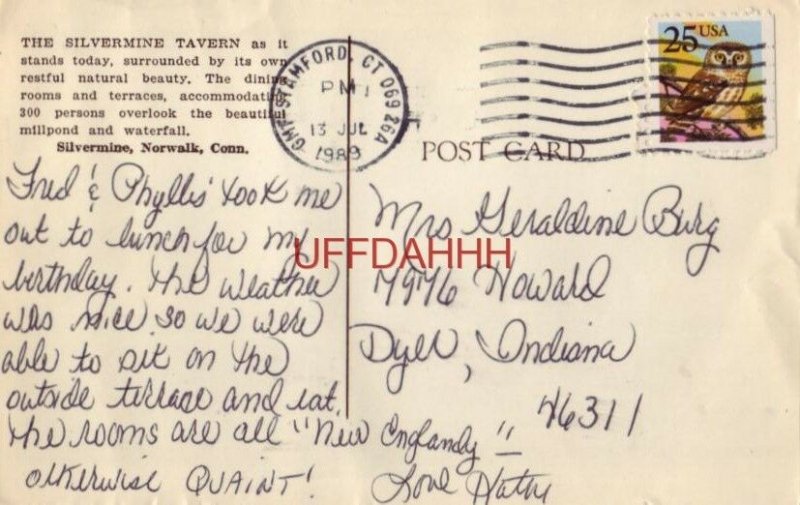 THE SILVERMINE TAVERN as it
stands today, surrounded by its own
restful natural beauty. The dining
rooms and terraces, accommodating
300 persons overlook the beautiful
millpond and waterfall.
Silvermine, Norwalk, Conn.
GMF STAMFORD, CT 069 26A
PM
13 JUL
1989
25 USA
POST CARD
Fred & Phyllis took me
out to lunch for my
birthday. The weather
was nice so we were
able to sit on the
outside terrace and eat.
The rooms are all "New Englandy" –
otherwise QUAINT!
Love Kathy
Mrs Geraldine Burg
7976 Howard
Dyer, Indiana
46311
UFFDAHHH